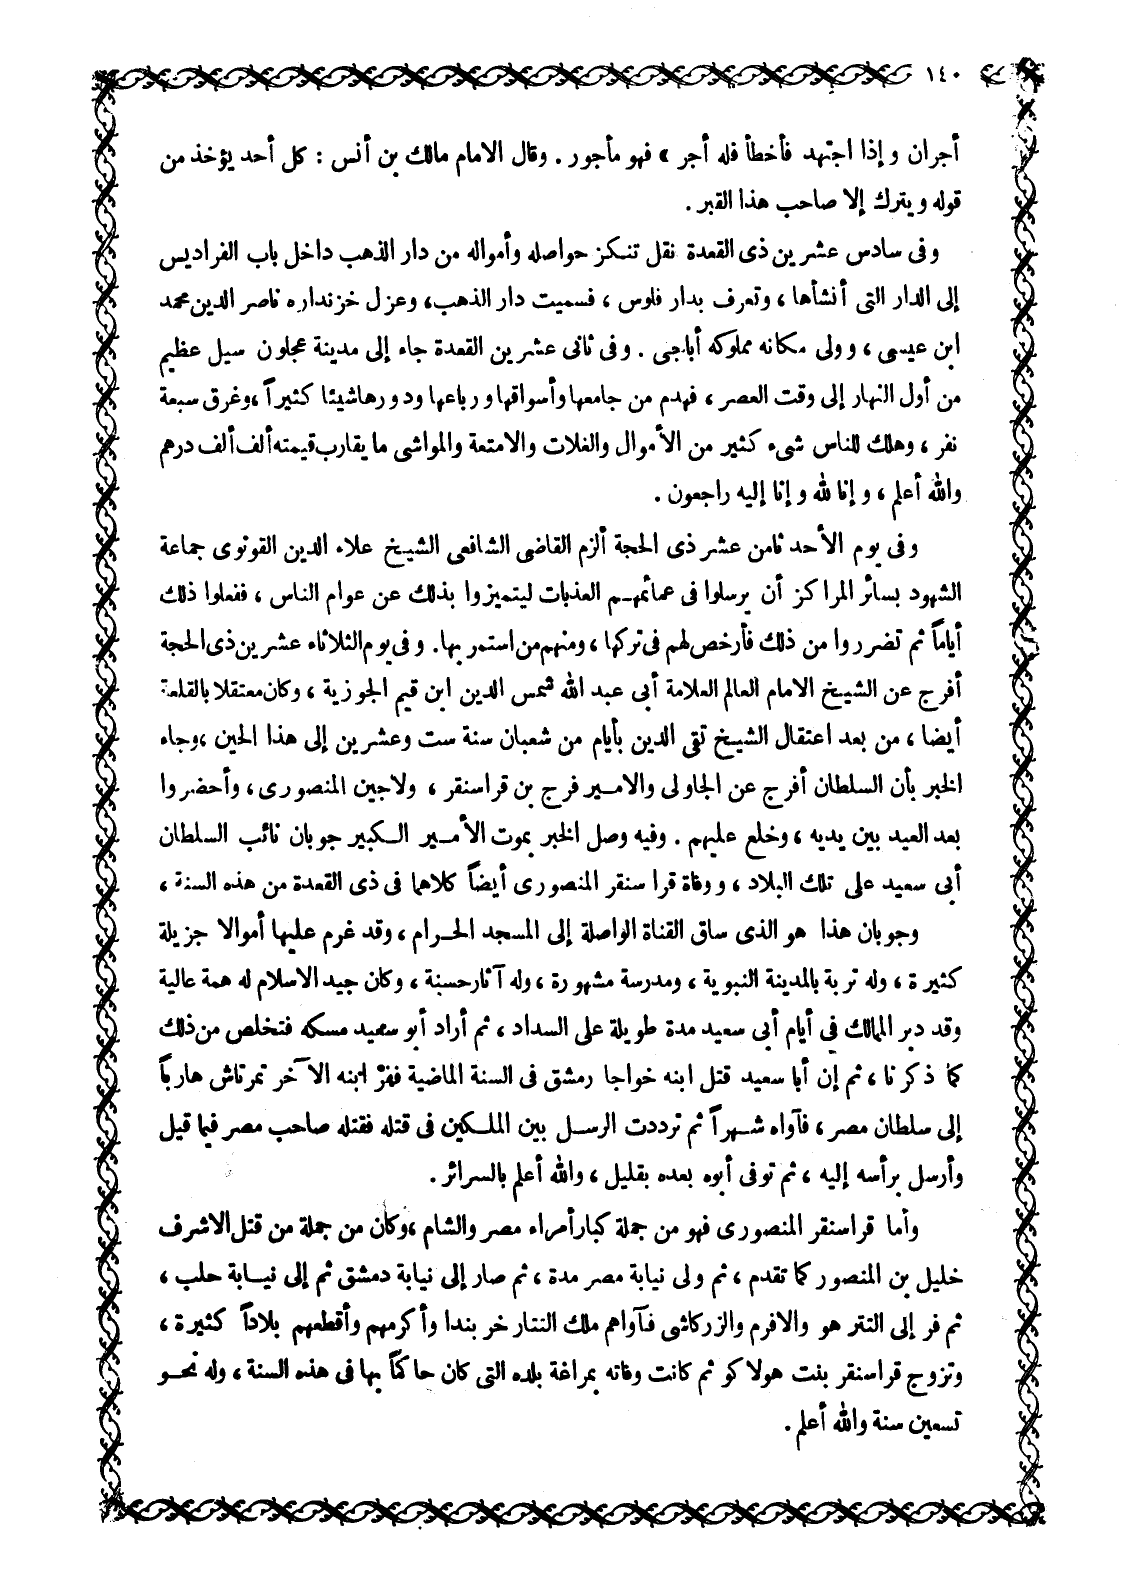 ١٤٠
أجران وإذا اجتهد فأخطأ فله أجر » فهو مأجور . وقال الامام مالك بن أنس : كل أحد يؤخذ من
قوله ويترك إلا صاحب هذا القبر .
وفى سادس عشرين ذى القعدة نقل تنكز حواصله وأمواله من دار الذهب داخل باب الفراديس
إلى الدار التى أنشأها ، وتعرف بدار فلوس ، فسميت دار الذهب ، وعزل خزنداره ناصر الدين محمد
ابن عيسى ، وولى مكانه مملوكه أباجى . وفى ثانى عشرين القعدة جاء إلى مدينة عجلون سيل عظيم
من أول النهار إلى وقت العصر ، فهدم من جامعها وأسواقها ورباعها ودورها شيئا كثيراً ، وغرق سبعة
نفر ، وهلك للناس شىء كثير من الأموال والغلات والامتعة والمواشى ما يقارب قيمته ألف ألف درهم
والله أعلم ، وإنا لله وإنا إليه راجعون .
وفى يوم الأحد ثامن عشر ذى الحجة ألزم القاضى الشافعى الشيخ علاء الدين القونوى جماعة
الشهود بسائر المراكز أن يرسلوا فى عمائمهم العذبات ليتميزوا بذلك عن عوام الناس ، ففعلوا ذلك
أياماً ثم تضرروا من ذلك فأرخص لهم فى تركها ، ومنهم من استمر بها . وفى يوم الثلاثاء عشرين ذى الحجة
أفرج عن الشيخ الامام العالم العلامة أبى عبد الله شمس الدين ابن قيم الجوزية ، وكان معتقلا بالقلعة
أيضا ، من بعد اعتقال الشيخ تقى الدين بأيام من شعبان سنة ست وعشرين إلى هذا الحين ، وجاء
الخبر بأن السلطان أفرج عن الجاولى والامير فرج بن قراسنقر ، ولاجين المنصورى ، وأحضروا
بعد العيد بين يديه ، وخلع عليهم . وفيه وصل الخبر بموت الأمير الكبير جوبان نائب السلطان
أبى سعيد على تلك البلاد ، ووفاة قراسنقر المنصورى أيضاً كلاهما فى ذى القعدة من هذه السنة ،
وجوبان هذا هو الذى ساق القناة الواصلة إلى المسجد الحرام ، وقد غرم عليها أموالا جزيلة
كثيرة ، وله تربة بالمدينة النبوية ، ومدرسة مشهورة ، وله آثار حسنة ، وكان جيد الاسلام له همة عالية
وقد دبر الممالك فى أيام أبى سعيد مدة طويلة على السداد ، ثم أراد أبو سعيد مسكه فتخلص من ذلك
كما ذكرنا ، ثم إن أبا سعيد قتل ابنه خواجا رمشق فى السنة الماضية ففرّ ابنه الآخر تمرتاش هارباً
إلى سلطان مصر ، فآواه شهراً ثم ترددت الرسل بين الملكين فى قتله فقتله صاحب مصر فيما قيل
وأرسل برأسه إليه ، ثم توفى أبوه بعده بقليل ، والله أعلم بالسرائر .
وأما قراسنقر المنصورى فهو من جملة كبار أمراء مصر والشام ، وكان من جملة من قتل الاشرف
خليل بن المنصور كما تقدم ، ثم ولى نيابة مصر مدة ، ثم صار إلى نيابة دمشق ثم إلى نيابة حلب ،
ثم فر إلى التتر هو والافرم والزركاشى فآواهم ملك التتار خربندا وأكرمهم وأقطعهم بلاداً كثيرة ،
وتزوج قراسنقر بنت هولاكو ثم كانت وفاته بمراغة بلده التى كان حاكماً بها فى هذه السنة ، وله نحو
تسعين سنة والله أعلم .